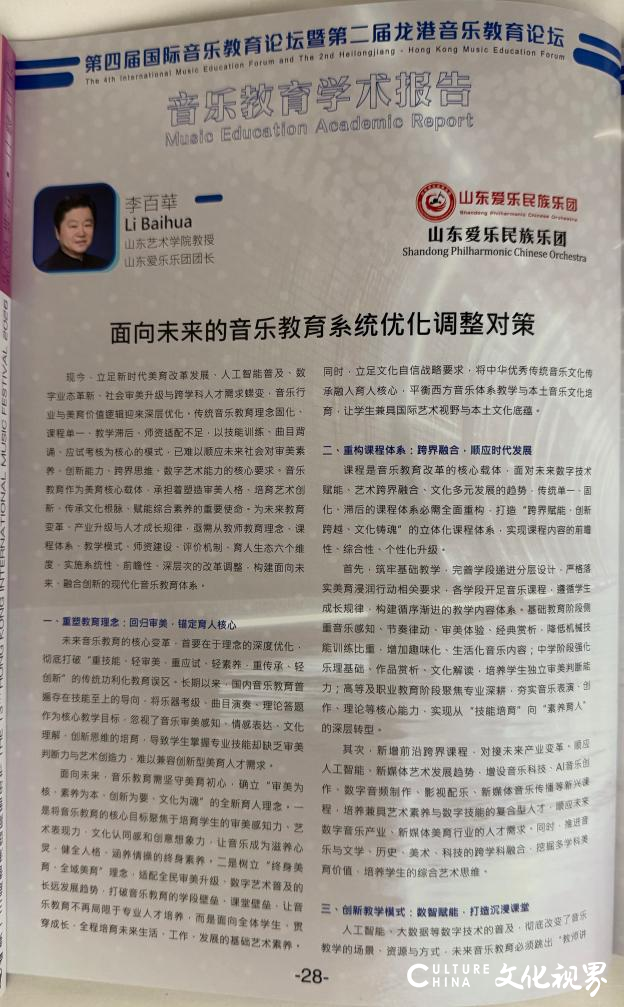 第四届国际音乐教育论坛暨第二届龙港音乐教育论坛
The 4th International Music Education Forum and The 2nd Heilongjiang - Hong Kong Music Education Forum
音乐教育学术报告
Music Education Academic Report
李百華
Li Baihua
山东艺术学院教授
山东爱乐乐团团长
山东爱乐民族乐团
Shandong Philharmonic Chinese Orchestra
山东爱乐民族乐团
Shandong Philharmonic Chinese Orchestra
面向未来的音乐教育系统优化调整对策
现今，立足新时代美育改革发展、人工智能普及、数
字业态革新、社会审美升级与跨学科人才需求蝶变，音乐行
业与美育价值逻辑迎来深层优化。传统音乐教育理念固化、
课程单一、教学滞后、师资适配不足，以技能训练、曲目背
诵、应试考核为核心的模式，已难以顺应未来社会对审美素
养、创新能力、跨界思维、数字艺术能力的核心要求。音乐
教育作为美育核心载体，承担着塑造审美人格、培育艺术创
新、传承文化根脉、赋能综合素养的重要使命。为未来教育
变革、产业升级与人才成长规律，亟需从教师教育理念、课
程体系、教学模式、师资建设、评价机制、育人生态六个维
度，实施系统性、前瞻性、深层次的改革调整，构建面向未
来、融合创新的现代化音乐教育体系。
一、重塑教育理念：回归审美，锚定育人核心
未来音乐教育的核心变革，首要在于理念的深度优化，
彻底打破“重技能、轻审美，重应试、轻素养，重传承、轻
创新”的传统功利化教育误区。长期以来，国内音乐教育普
遍存在技能至上的导向，将乐器考级、曲目演奏、理论答题
作为核心教学目标，忽视了音乐审美感知、情感表达、文化
理解、创新思维的培育，导致学生掌握专业技能却缺乏审美
判断力与艺术创造力，难以兼容创新型美育人才需求。
面向未来，音乐教育需坚守美育初心，确立“审美为
核、素养为本、创新为要、文化为魂”的全新育人理念。一
是将音乐教育的核心目标聚焦于培育学生的审美感知力、艺
术表现力、文化认同感和创意想象力，让音乐成为滋养心
灵、健全人格、涵养情操的终身素养。二是树立“终身美
育、全域美育”理念，适配全民审美升级、数字艺术普及的
长远发展趋势，打破音乐教育的学段壁垒、课堂壁垒，让音
乐教育不再局限于专业人才培养，而是面向全体学生，贯
穿成长、全程培育未来生活、工作、发展的基础艺术素养。
同时，立足文化自信战略要求，将中华优秀传统音乐文化传
承融入育人核心，平衡西方音乐体系教学与本土音乐文化培
育，让学生兼具国际艺术视野与本土文化底蕴。
二、重构课程体系：跨界融合，顺应时代发展
课程是音乐教育改革的核心载体，面对未来数字技术
赋能、艺术跨界融合、文化多元发展的趋势，传统单一、固
化、滞后的课程体系必需全面重构，打造“跨界赋能、创新
跨越、文化铸魂”的立体化课程体系，实现课程内容的前瞻
性、综合性、个性化升级。
首先，筑牢基础教学，完善学段递进分层设计，严格落
实美育浸润行动相关要求，各学段开足音乐课程，遵循学生
成长规律，构建循序渐进的教学内容体系。基础教育阶段侧
重音乐感知、节奏律动、审美体验、经典赏析，降低机械技
能训练比重，增加趣味化、生活化音乐内容；中学阶段强化
乐理基础、作品赏析、文化解读，培养学生独立审美判断能
力；高等及职业教育阶段聚焦专业深耕，夯实音乐表演、创
作、理论等核心能力，实现从“技能培育”向“素养育人”
的深层转型。
其次，新增前沿跨界课程，对接未来产业变革。顺应
人工智能、新媒体艺术发展趋势，增设音乐科技、AI音乐创
作、数字音频制作、影视配乐、新媒体音乐传播等新兴课
程，培养兼具艺术素养与数字技能的复合型人才，顺应未来
数字音乐产业、新媒体美育行业的人才需求。同时，推进音
乐与文学、历史、美术、科技的跨学科融合，挖掘多学科美
育价值，培养学生的综合艺术思维。
三、创新教学模式：数智赋能，打造沉浸课堂
人工智能、大数据等数字技术的普及，彻底改变了音乐
教学的场景、资源与方式，未来音乐教育必须跳出“教师讲
-28-
CULTURE CHINA 文化视界